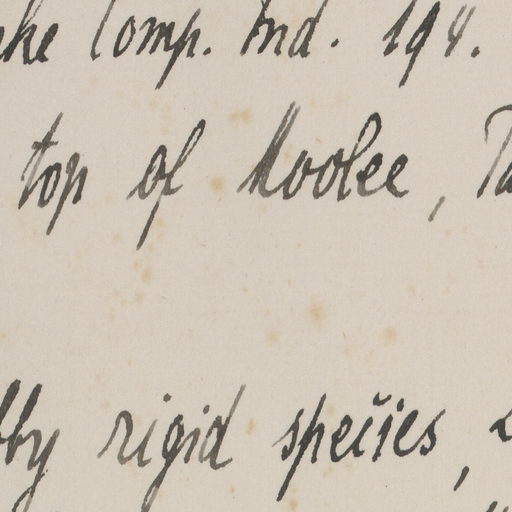 ke Comp. Ind. 194.
top of Moolee, Ta
by rigid species,